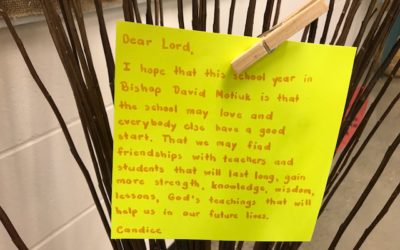 Dear Lord,
I hope that this school year in
Bishop David Motiuk is that
the school may love and
everybody else have a good
start. That we may find
friendships with teachers and
students that will last long, gain
more strength, knowledge, wisdom,
lessons, God's teachings that will
help us in our future lives.
Candice